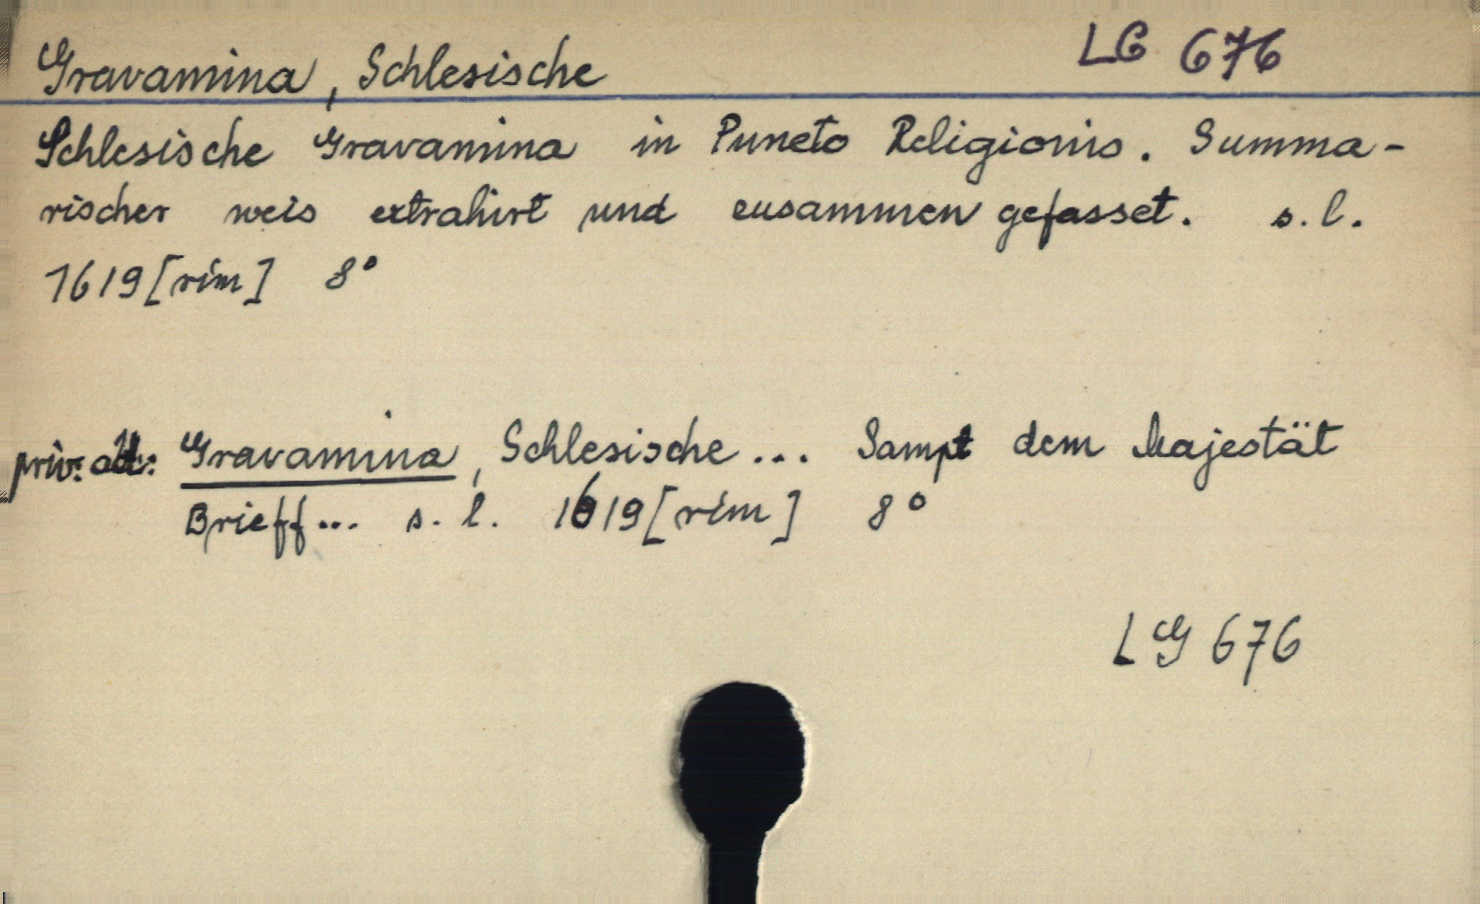 LG 676
Gravamina, Schlesische
Schlesische Gravamina in Puncto Religionis. Summa-
rischer weis extrahirt und zusammen gefasset. s.l.
1619 [rím] 8°
priv. adl.: Gravamina, Schlesische... Sampt dem Majestät
Brieff... s. l. 1619 [rím] 8°
LG 676